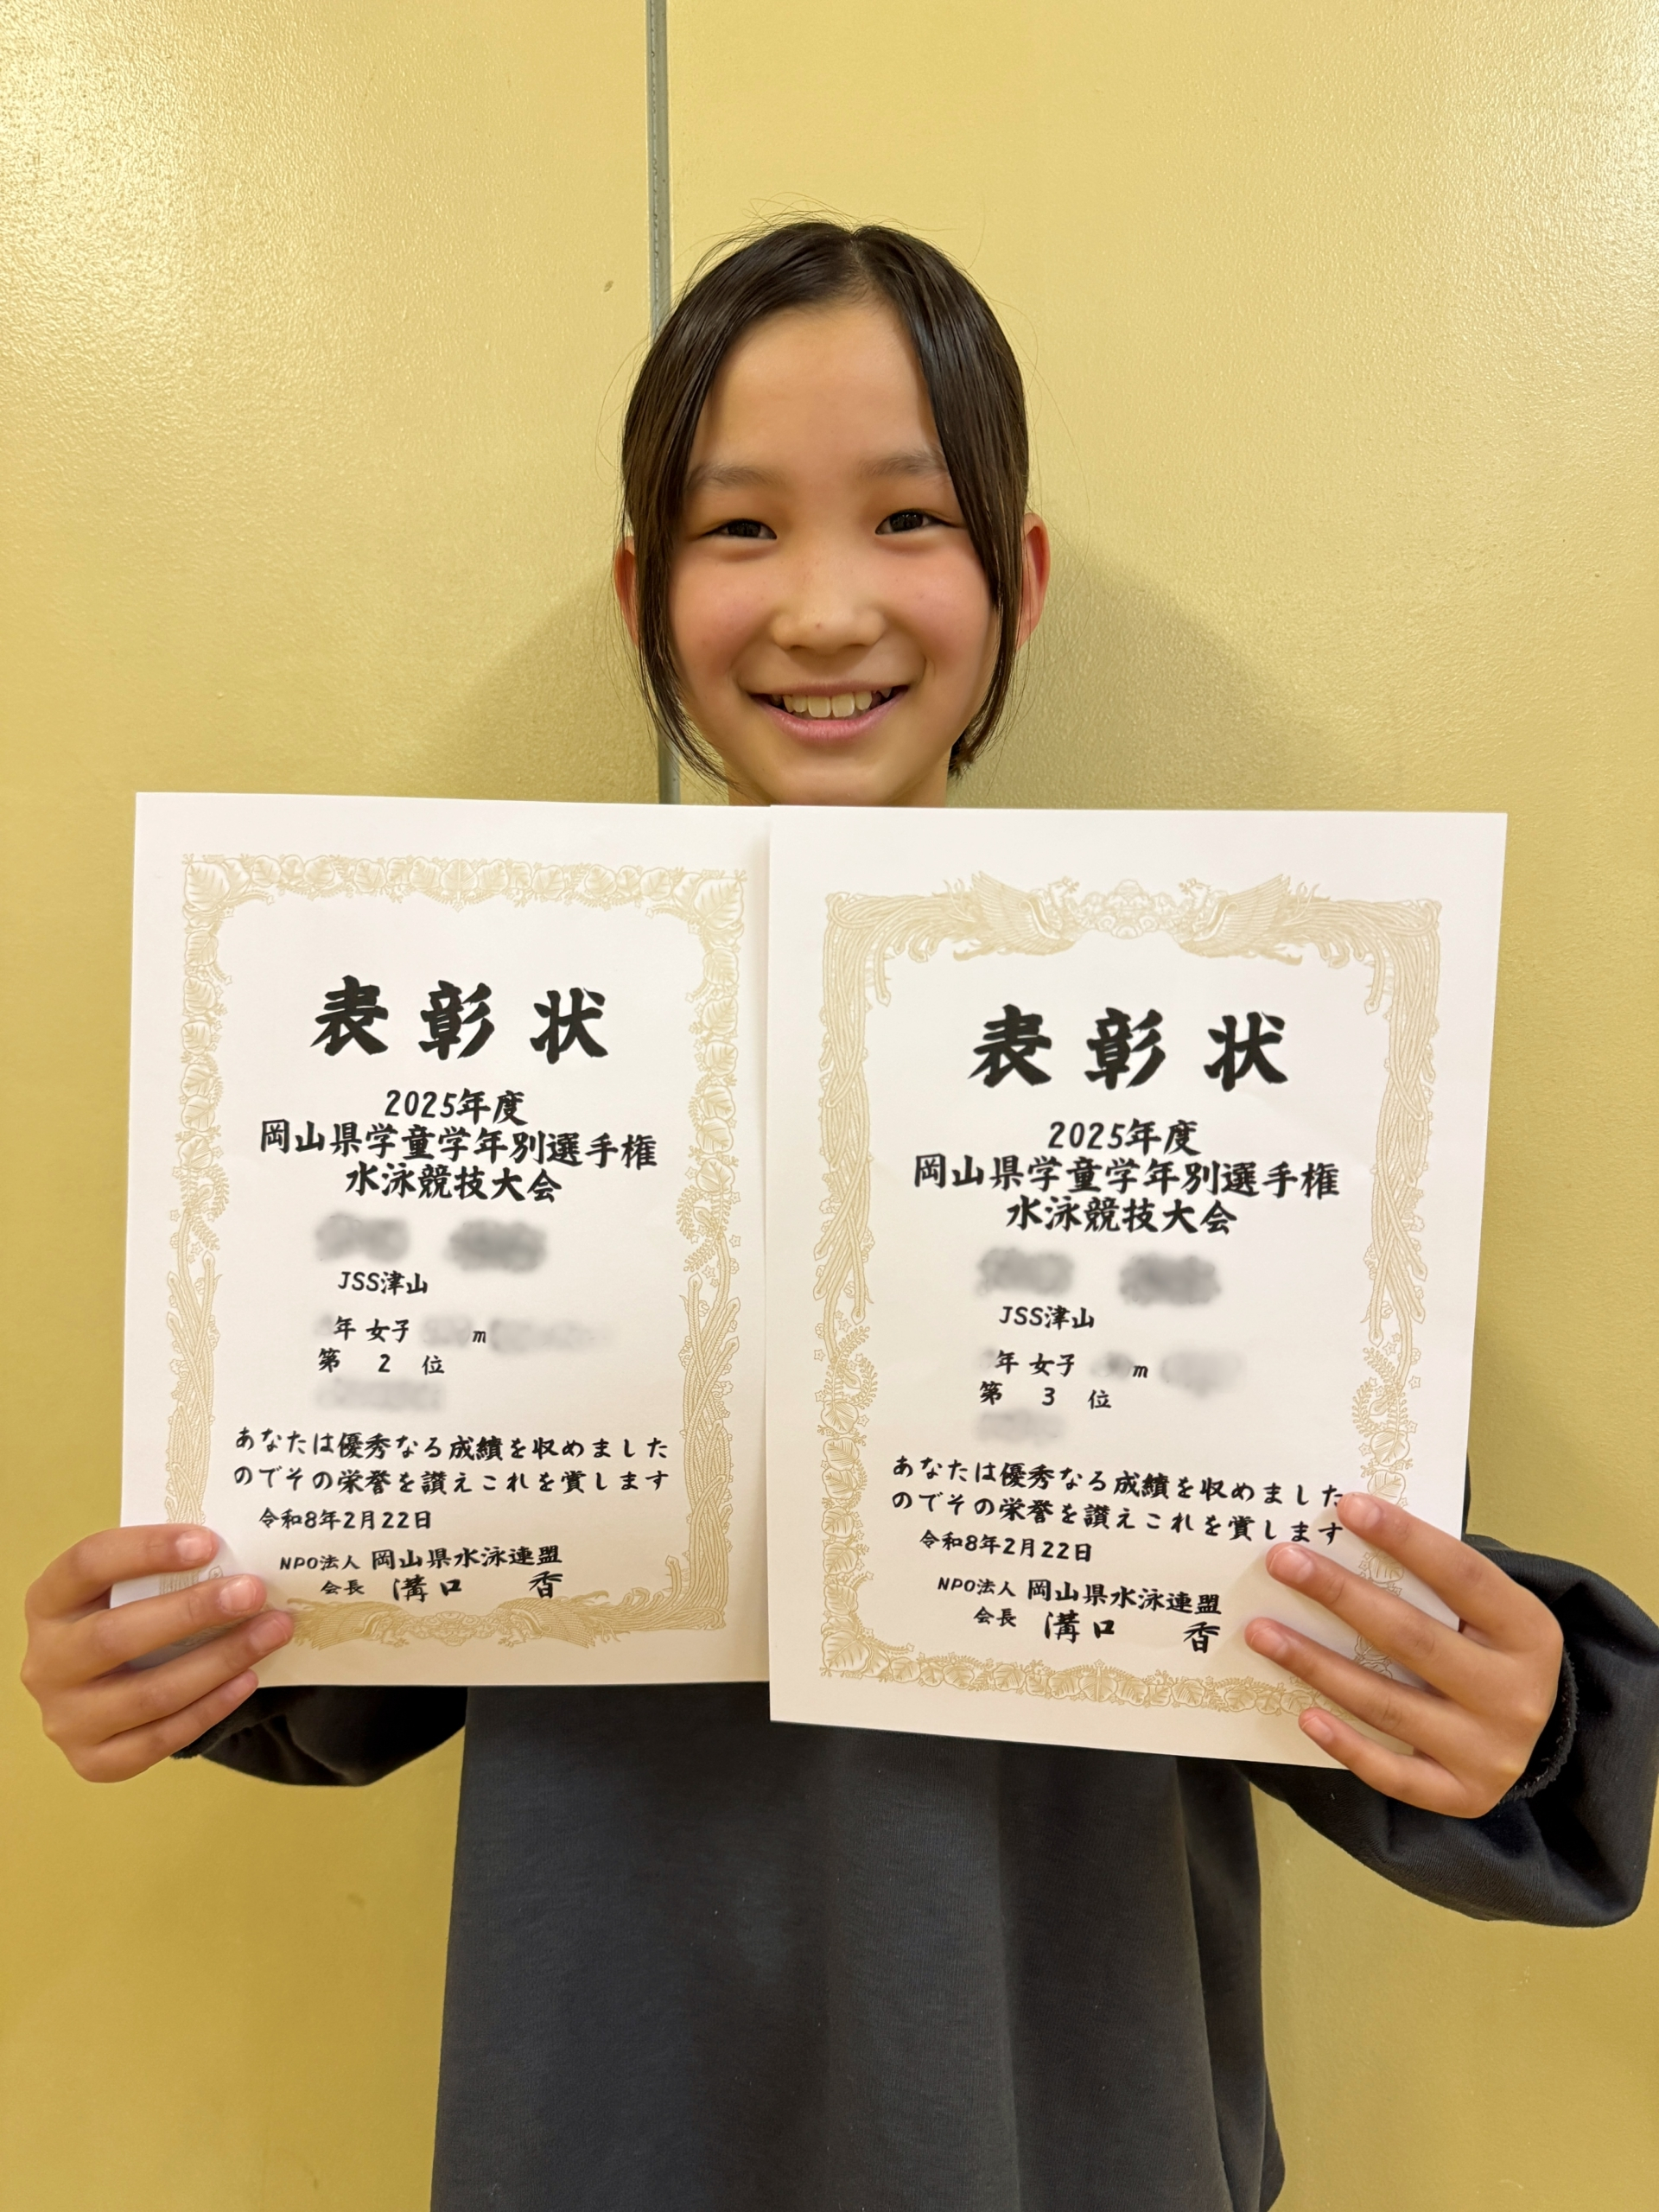 表彰状
2025年度
岡山県学童学年別選手権
水泳競技大会
JSS津山
年 女子 m
第 2 位
あなたは優秀なる成績を収めました
のでその栄誉を讃えこれを賞します
令和8年2月22日
NPO法人 岡山県水泳連盟
会長 溝口 香
表彰状
2025年度
岡山県学童学年別選手権
水泳競技大会
JSS津山
年 女子 m
第 3 位
あなたは優秀なる成績を収めました
のでその栄誉を讃えこれを賞します
令和8年2月22日
NPO法人 岡山県水泳連盟
会長 溝口 香